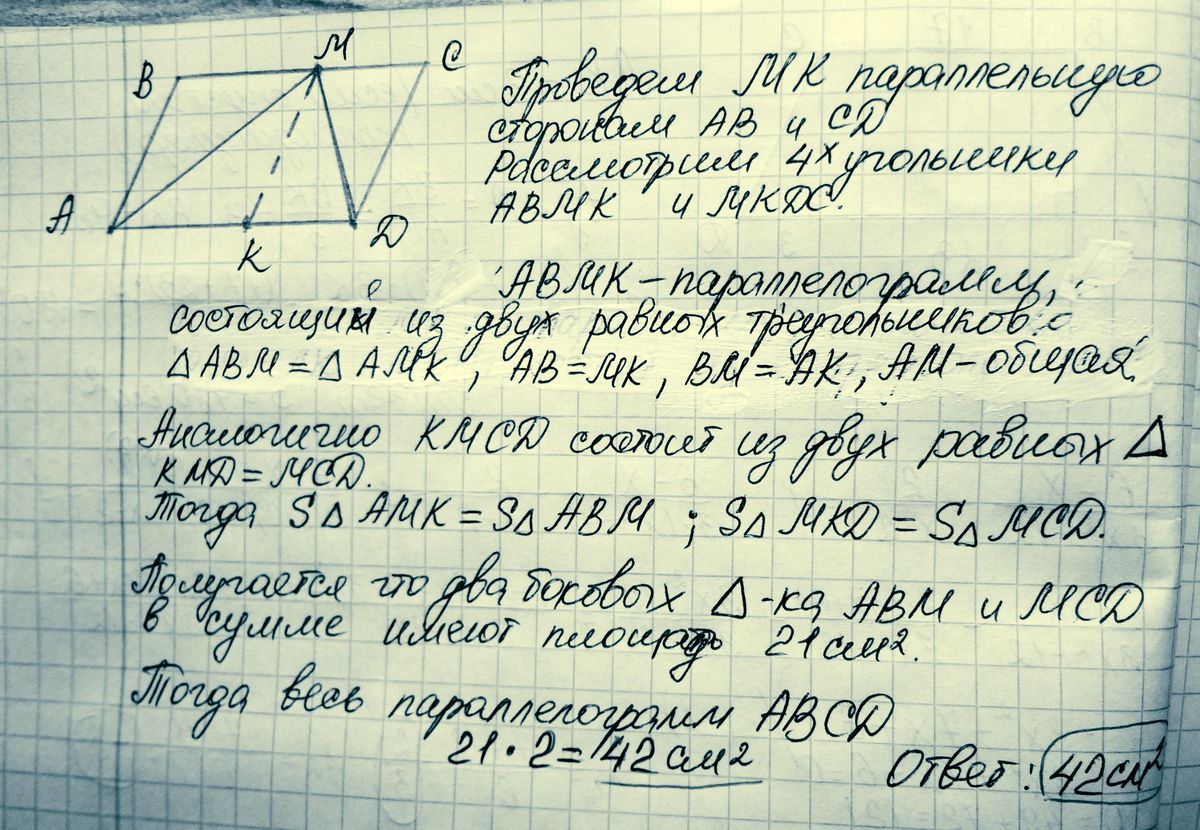 B M C
A K D
Проведем МК параллельную
сторонам АВ и CD
Рассмотрим 4х угольники
АВМК и MKDC.
АВМК - параллелограмм,
состоящий из двух равных треугольников:
Δ ABM = Δ AMK , AB = MK , BM = AK , AM - общая.
Аналогично KMCD состоит из двух равных Δ
KMD = MCD.
Тогда SΔ AMK = SΔ ABM ; SΔ MKD = SΔ MCD.
Получается что два боковых Δ-ка ABM и MCD
в сумме имеют площадь 21 см².
Тогда весь параллелограмм ABCD
21 · 2 = 42 см²
Ответ: 42 см²